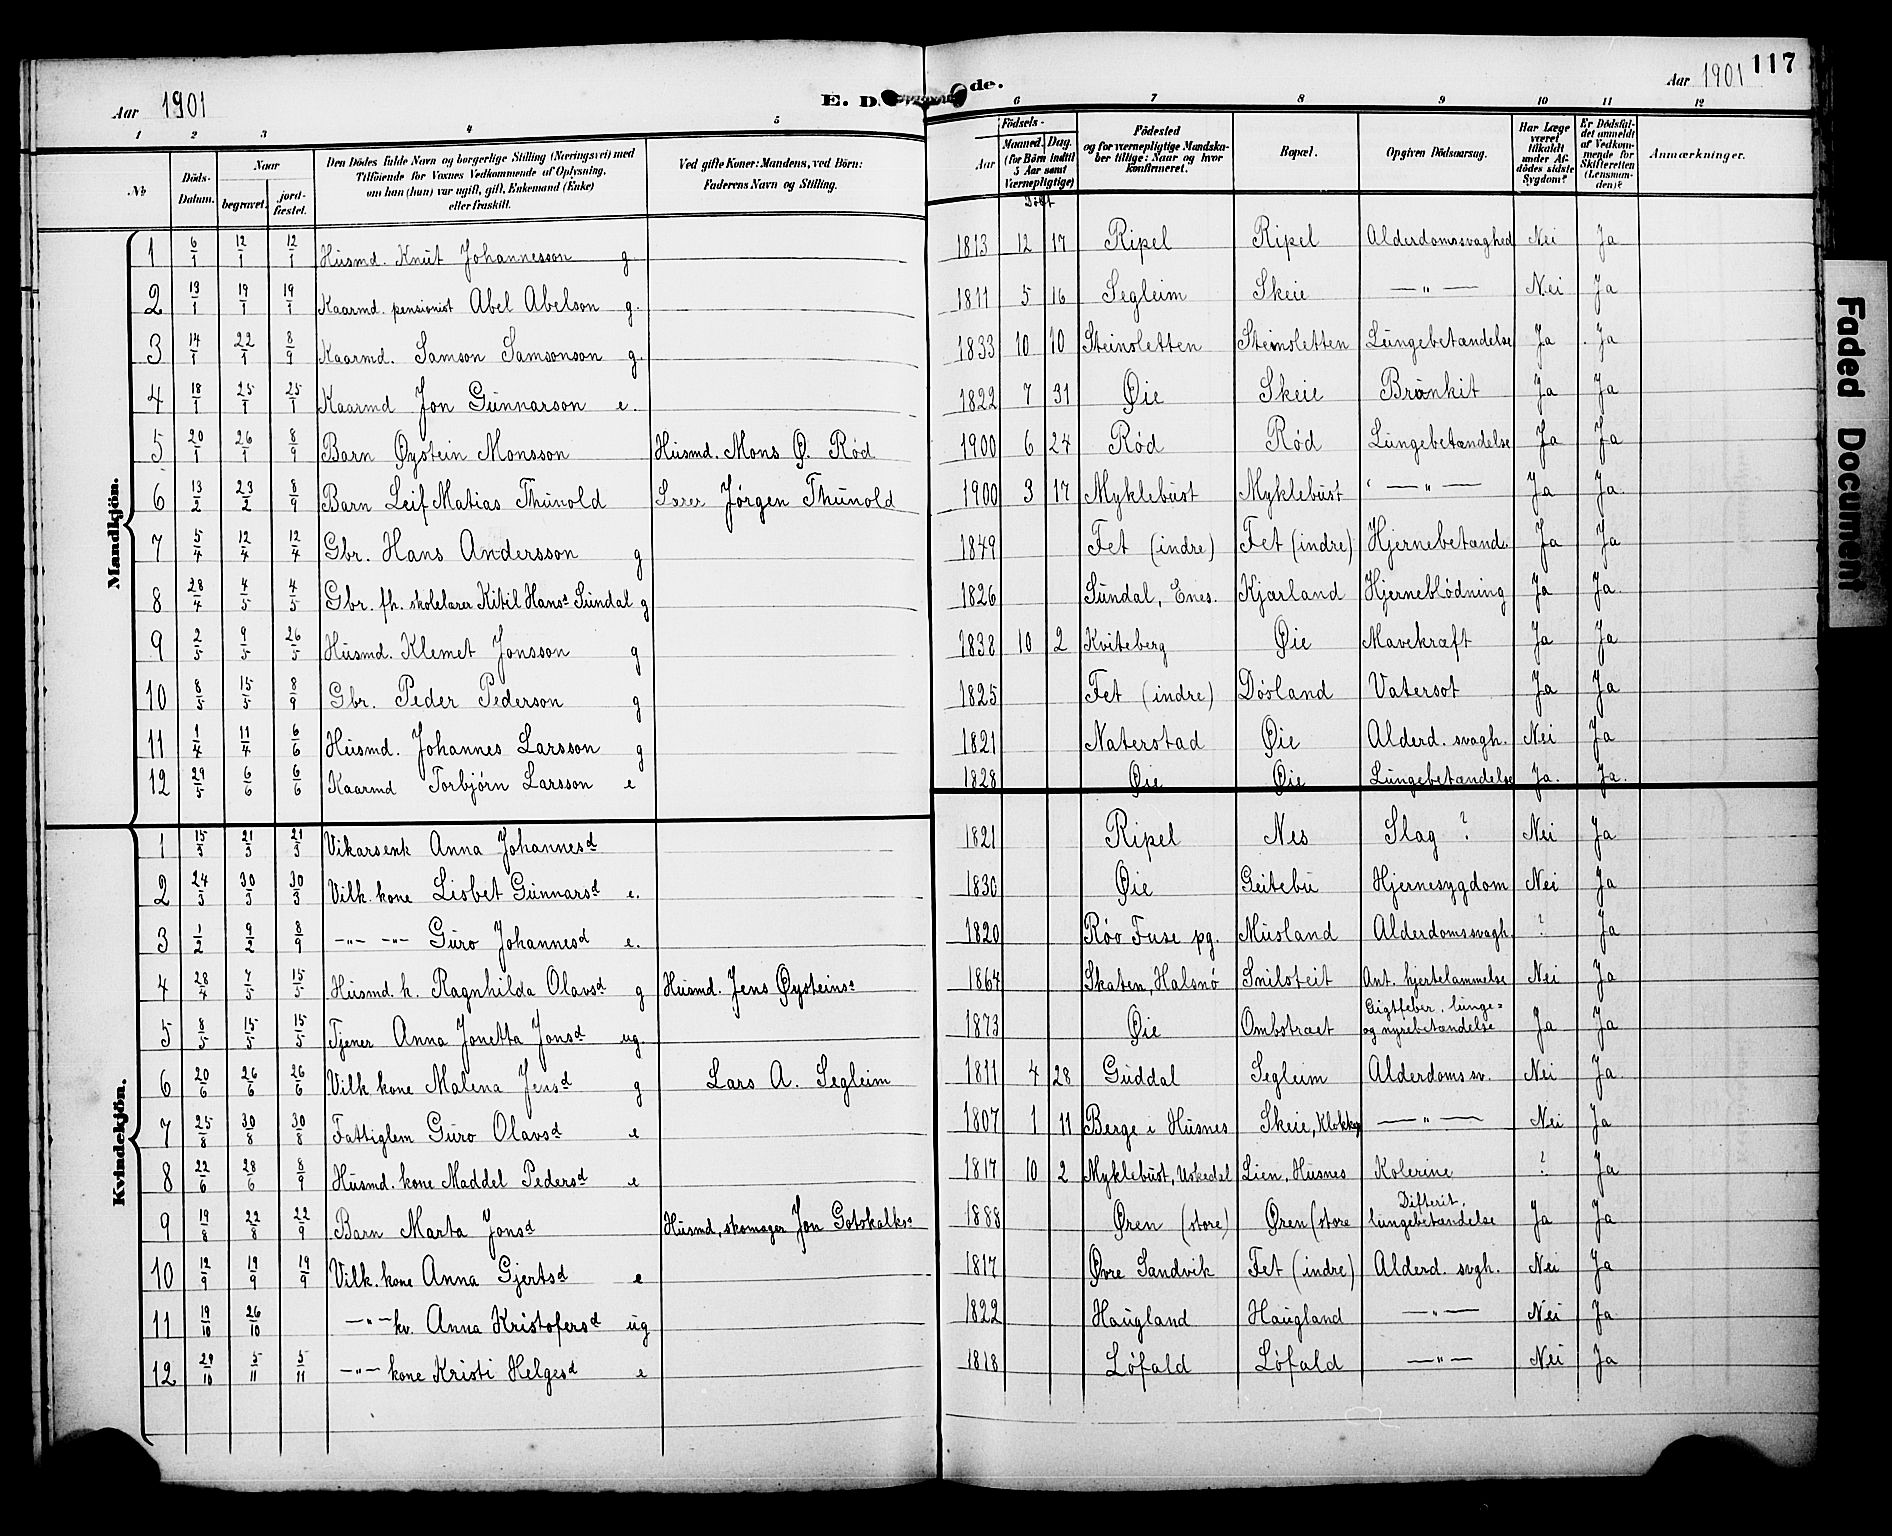 117
Aar 1901
E. D
de.
Aar 1901
1 2 3 4 5 6 7 8 9 10 11 12
No
Döds-Datum.
Naar
begravet.
jord-fæstet.
Den Dödes fulde Navn og borgerlige Stilling (Næringsvei) med
Tilföiende for Voxnes Vedkommende af Oplysning,
om han (hun) var ugift, gift, Enkemand (Enke)
eller fraskilt.
Ved gifte Koner: Mandens, ved Börn:
Faderens Navn og Stilling.
Födsels-
Aar
Maaned. Dag.
(for Börn indtil
5 Aar samt
Værnepligtige)
Födested
og for værnepligtige Mandska-
ber tillige: Naar og hvor
konfirmeret.
Bopæl.
Opgiven Dödsaarsag.
Har Læge
været
tilkaldt
under Af-
dödes sidste
Sygdom?
Er Dödsfal-
det anmeldt
af Vedkom-
mende for
Skifteretten
(Lensman-
den)?
Anmærkninger.
Døbt
Mandkjön.
1 6/1 12/1 12/1 Husmd. Knut Johannesson g. 1813 12 17 Ripel Ripel Alderdomssvaghed Nei Ja
2 13/1 19/1 19/1 Kaarmd. pensionist Abel Abelson g. 1811 5 16 Segleim Skeie — " — Nei Ja
3 14/1 22/1 8/9 Kaarmd. Samson Samsonson g. 1833 10 10 Steinsletten Steinsletten Lungebetændelse Ja Ja
4 18/1 25/1 25/1 Kaarmd Jon Gunnarson e. 1822 7 31 Øie Skeie Bronkit Ja Ja
5 20/1 26/1 8/9 Barn Øystein Monsson Husmd. Mons Ø. Rød 1900 6 24 Rød Rød Lungebetændelse Ja Ja
6 13/2 23/2 8/9 Barn Leif Matias Thunold Lærer Jørgen Thunold 1900 3 17 Myklebust Myklebust — " — Ja Ja.
7 5/4 12/4 12/4 Gbr. Hans Andersson g 1849 Fet (indre) Fet (indre) Hjernebetænd. Ja Ja
8 28/4 4/5 4/5 Gbr. fh. skolelærer Kitil Hans s Sundal g 1826 Sundal, Enes. Kjærland Hjerneblødning Ja Ja.
9 2/5 9/5 26/5 Husmd. Klemet Jonsson g 1838 10 2 Kviteberg Øie Mavekræft Ja Ja
10 8/5 15/5 8/9 Gbr. Peder Pederson g 1825 Fet (indre) Døsland Vatersot Ja Ja
11 1/4 11/4 6/6 Husmd. Johannes Larsson g 1821 Naterstad Øie Alderd. svagh. Nei Ja
12 29/5 6/6 6/6 Kaarmd Torbjørn Larsson e 1828 Øie Øie Lungebetændelse Ja. Ja.
Kvindekjön.
1 15/3 21/3 21/3 Vikarsenk Anna Johannesd 1821 Ripel Nes Slag ? Nei Ja
2 24/3 30/3 30/3 Vilk. kone Lisbet Gunnarsd e. 1830 Øie Geitebu Hjernesygdom Nei Ja
3 1/2 9/2 8/9 —"— —"— Guro Johannesd e. 1820 Røo Fuse pg. Musland Alderdomssvagh. ? Ja
4 28/4 7/5 15/5 Husmd. k. Ragnhilda Olavsd g Husmd. Jens Øysteins s 1864 Skaten, Halsnø Snilsteit Ant. hjertelammelse Nei Ja
5 8/5 15/5 15/5 Tjener Anna Jonetta Jonsd ug. 1873 Øie Ombstræt Gigtfeber, lunge=
og nyrebetændelse Ja Ja
6 20/6 26/6 26/6 Vilk kone Malena Jensd g Lars A. Segleim 1811 4 28 Guddal Segleim Alderdoms sv. Nei Ja
7 25/8 30/8 30/8 Fattiglem Guro Olavsd e 1807 1 11 Berge i Husnes Skeie, Klokkg — " — Nei Ja
8 22/6 28/6 8/9 Husmd. kone Maddel Pedersd e 1817 10 2 Myklebust, Uskedal Lien, Husnes Kolerine ? Ja
9 19/8 22/8 22/9 Barn Marta Jonsd Husmd, skomager Jon Gotskalks s 1888 Øren (store) Øren (store Difterit,
lungebetændelse Ja Ja
10 12/9 19/9 19/9 Vilk. kone Anna Gjertsd e 1817 Øvre Sandvik Fet (indre) Alderd. svgh. Nei Ja
11 19/10 26/10 —"— kv. Anna Kristofersd ug 1822 Haugland Haugland — " — Nei Ja
12 29/10 5/11 5/11 —"— kone Kristi Helgesd e 1818 Løfald Løfald — " — Nei Ja
Faded Document